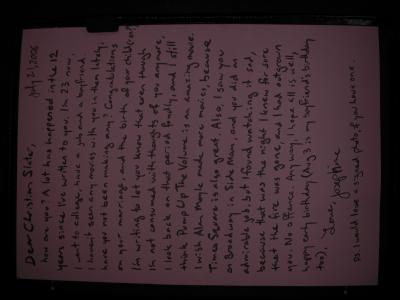 July 21, 2006
Dear Christian Slater,
how are you? A lot has happened in the 12
years since I've written to you. I'm 23 now,
I went to college, have a job and a boyfriend.
I haven't seen any movies with you in them lately,
have you not been making any? Congratulations
on your marriage, and the birth of your child(ren).
I'm writing to let you know that even though
I'm not consumed with thoughts of you anymore,
I look back on that period fondly, and I still
think Pump Up The Volume is an amazing movie.
I wish Alan Moyle made more movies, because
Times Square is also great. Also, I saw you
on Broadway in Side Man, and you did an
admirable job, but I found watching it sad,
because that was the night I knew for sure
that the fire was gone, and I had outgrown
you. No offence. Anyway, I hope all is well,
happy early birthday (Aug 3 is my boyfriend's birthday
too),
Love, Josephine
PS. I would love a signed photo, if you have one.